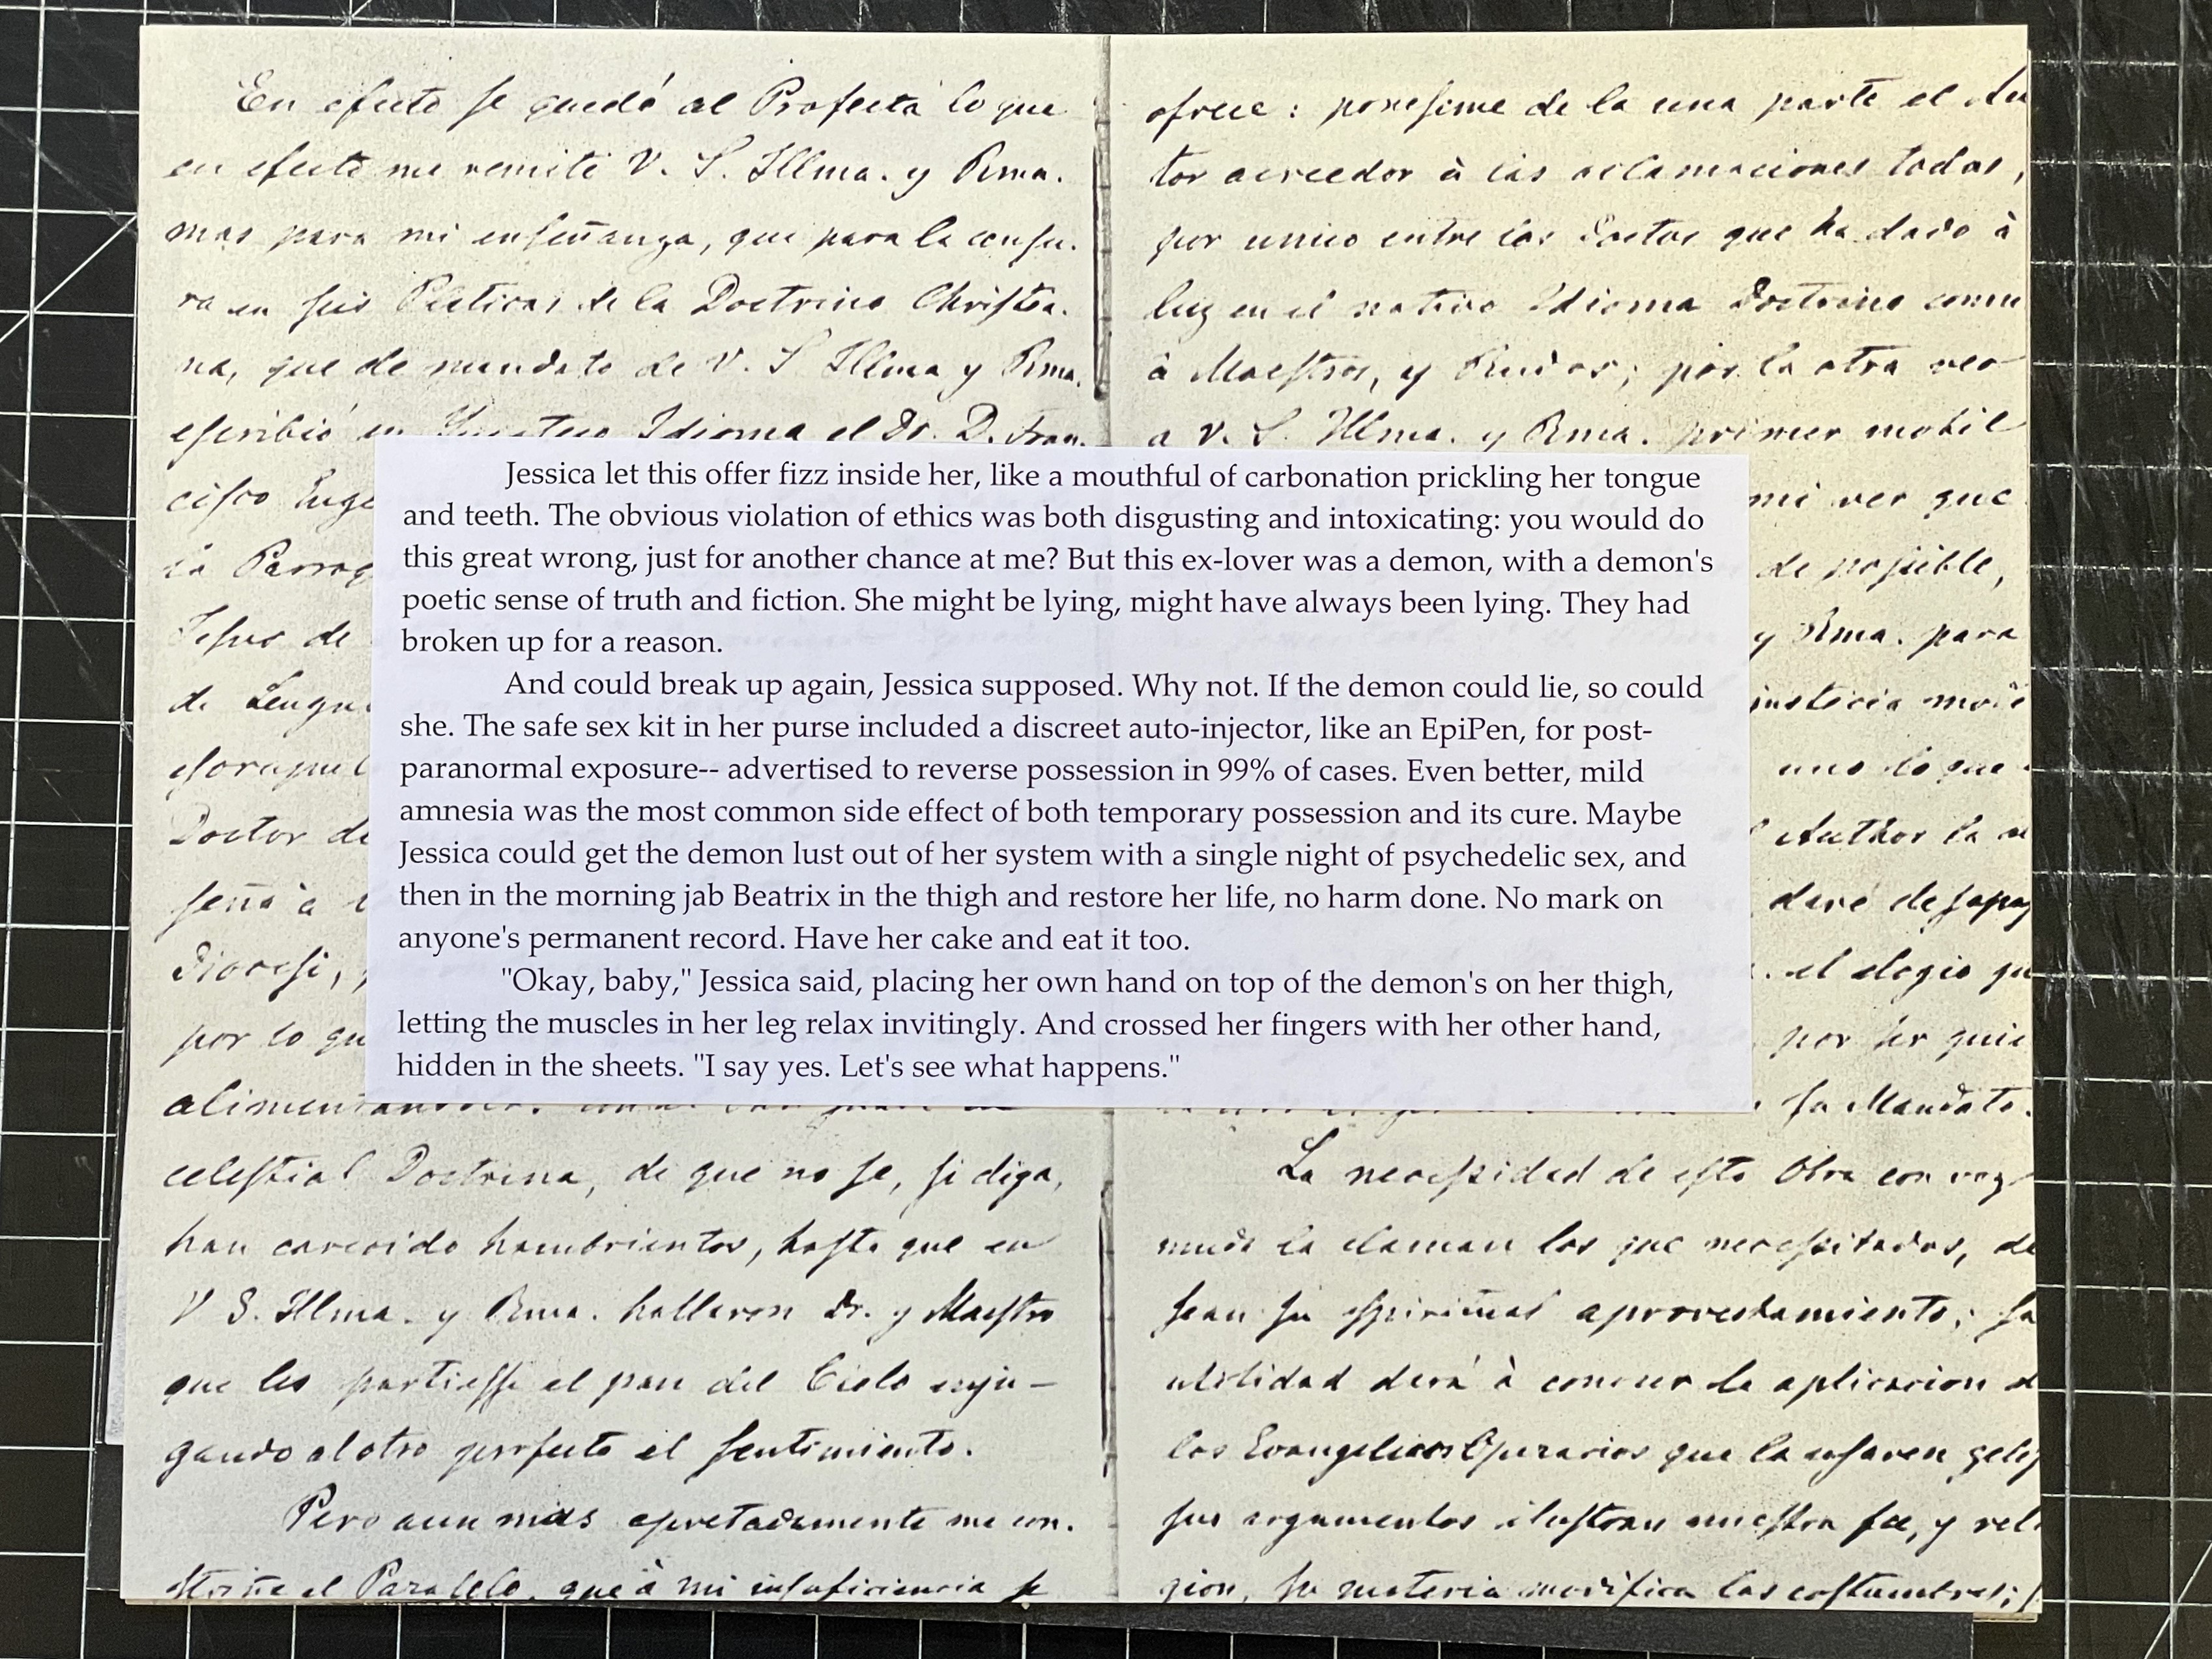 En efecto se quedó al Profecta lo que
en efecto me remite V. S. Illma. y Rma.
mas para mi enseñanza, que para la censu.
ra en sus Platicas de la Doctrina Christia.
na, que de mandato de V. S Illma y Rma.
escribió en Yucateco Idioma el Dr. D. Fran.
cisco Euge
la Parroq
Jesus de
de Lengu
Doctor de
seña à
Diocesi,
por lo qu
celestial Doctrina, de que no se, si diga,
han carecido hambrientos, hasta que en
V S. Illma. y Rma. hallaron Dr. y Maestro
que les partiesse el pan del Cielo enju-
gando al otro perfecto el sentimiento.
Pero aun mas apretadamente me con.
el Paralelo, que à mi insuficiencia se
Jessica let this offer fizz inside her, like a mouthful of carbonation prickling her tongue
and teeth. The obvious violation of ethics was both disgusting and intoxicating: you would do
this great wrong, just for another chance at me? But this ex-lover was a demon, with a demon's
poetic sense of truth and fiction. She might be lying, might have always been lying. They had
broken up for a reason.
And could break up again, Jessica supposed. Why not. If the demon could lie, so could
she. The safe sex kit in her purse included a discreet auto-injector, like an EpiPen, for post-
paranormal exposure-- advertised to reverse possession in 99% of cases. Even better, mild
amnesia was the most common side effect of both temporary possession and its cure. Maybe
Jessica could get the demon lust out of her system with a single night of psychedelic sex, and
then in the morning jab Beatrix in the thigh and restore her life, no harm done. No mark on
anyone's permanent record. Have her cake and eat it too.
"Okay, baby," Jessica said, placing her own hand on top of the demon's on her thigh,
letting the muscles in her leg relax invitingly. And crossed her fingers with her other hand,
hidden in the sheets. "I say yes. Let's see what happens."
ofrece: poneseme de la una parte el Au
tor acreedor à las aclamaciones todas,
por unico entre los Doctos que ha dado à
luz en el nativo Idioma Doctrina comun
à Maestros, y Rudos; por la otra veo
a V. S. Illma. y Rma. primer mobil
mi ver que
de possible,
y Rma. para
uno lo que
Author la
daré
el elogio
por ser quie
su Mandato.
La necessidad de esta Obra con voz
muda la claman los que necessitados, de
sean su espiritual aprovechamiento; su
utilidad dará à conocer la aplicacion d
los Evangelicos Operarios que la
sus argumentos ilustran nuestra fee, y reli
gion, su materia modifica las costumbres;